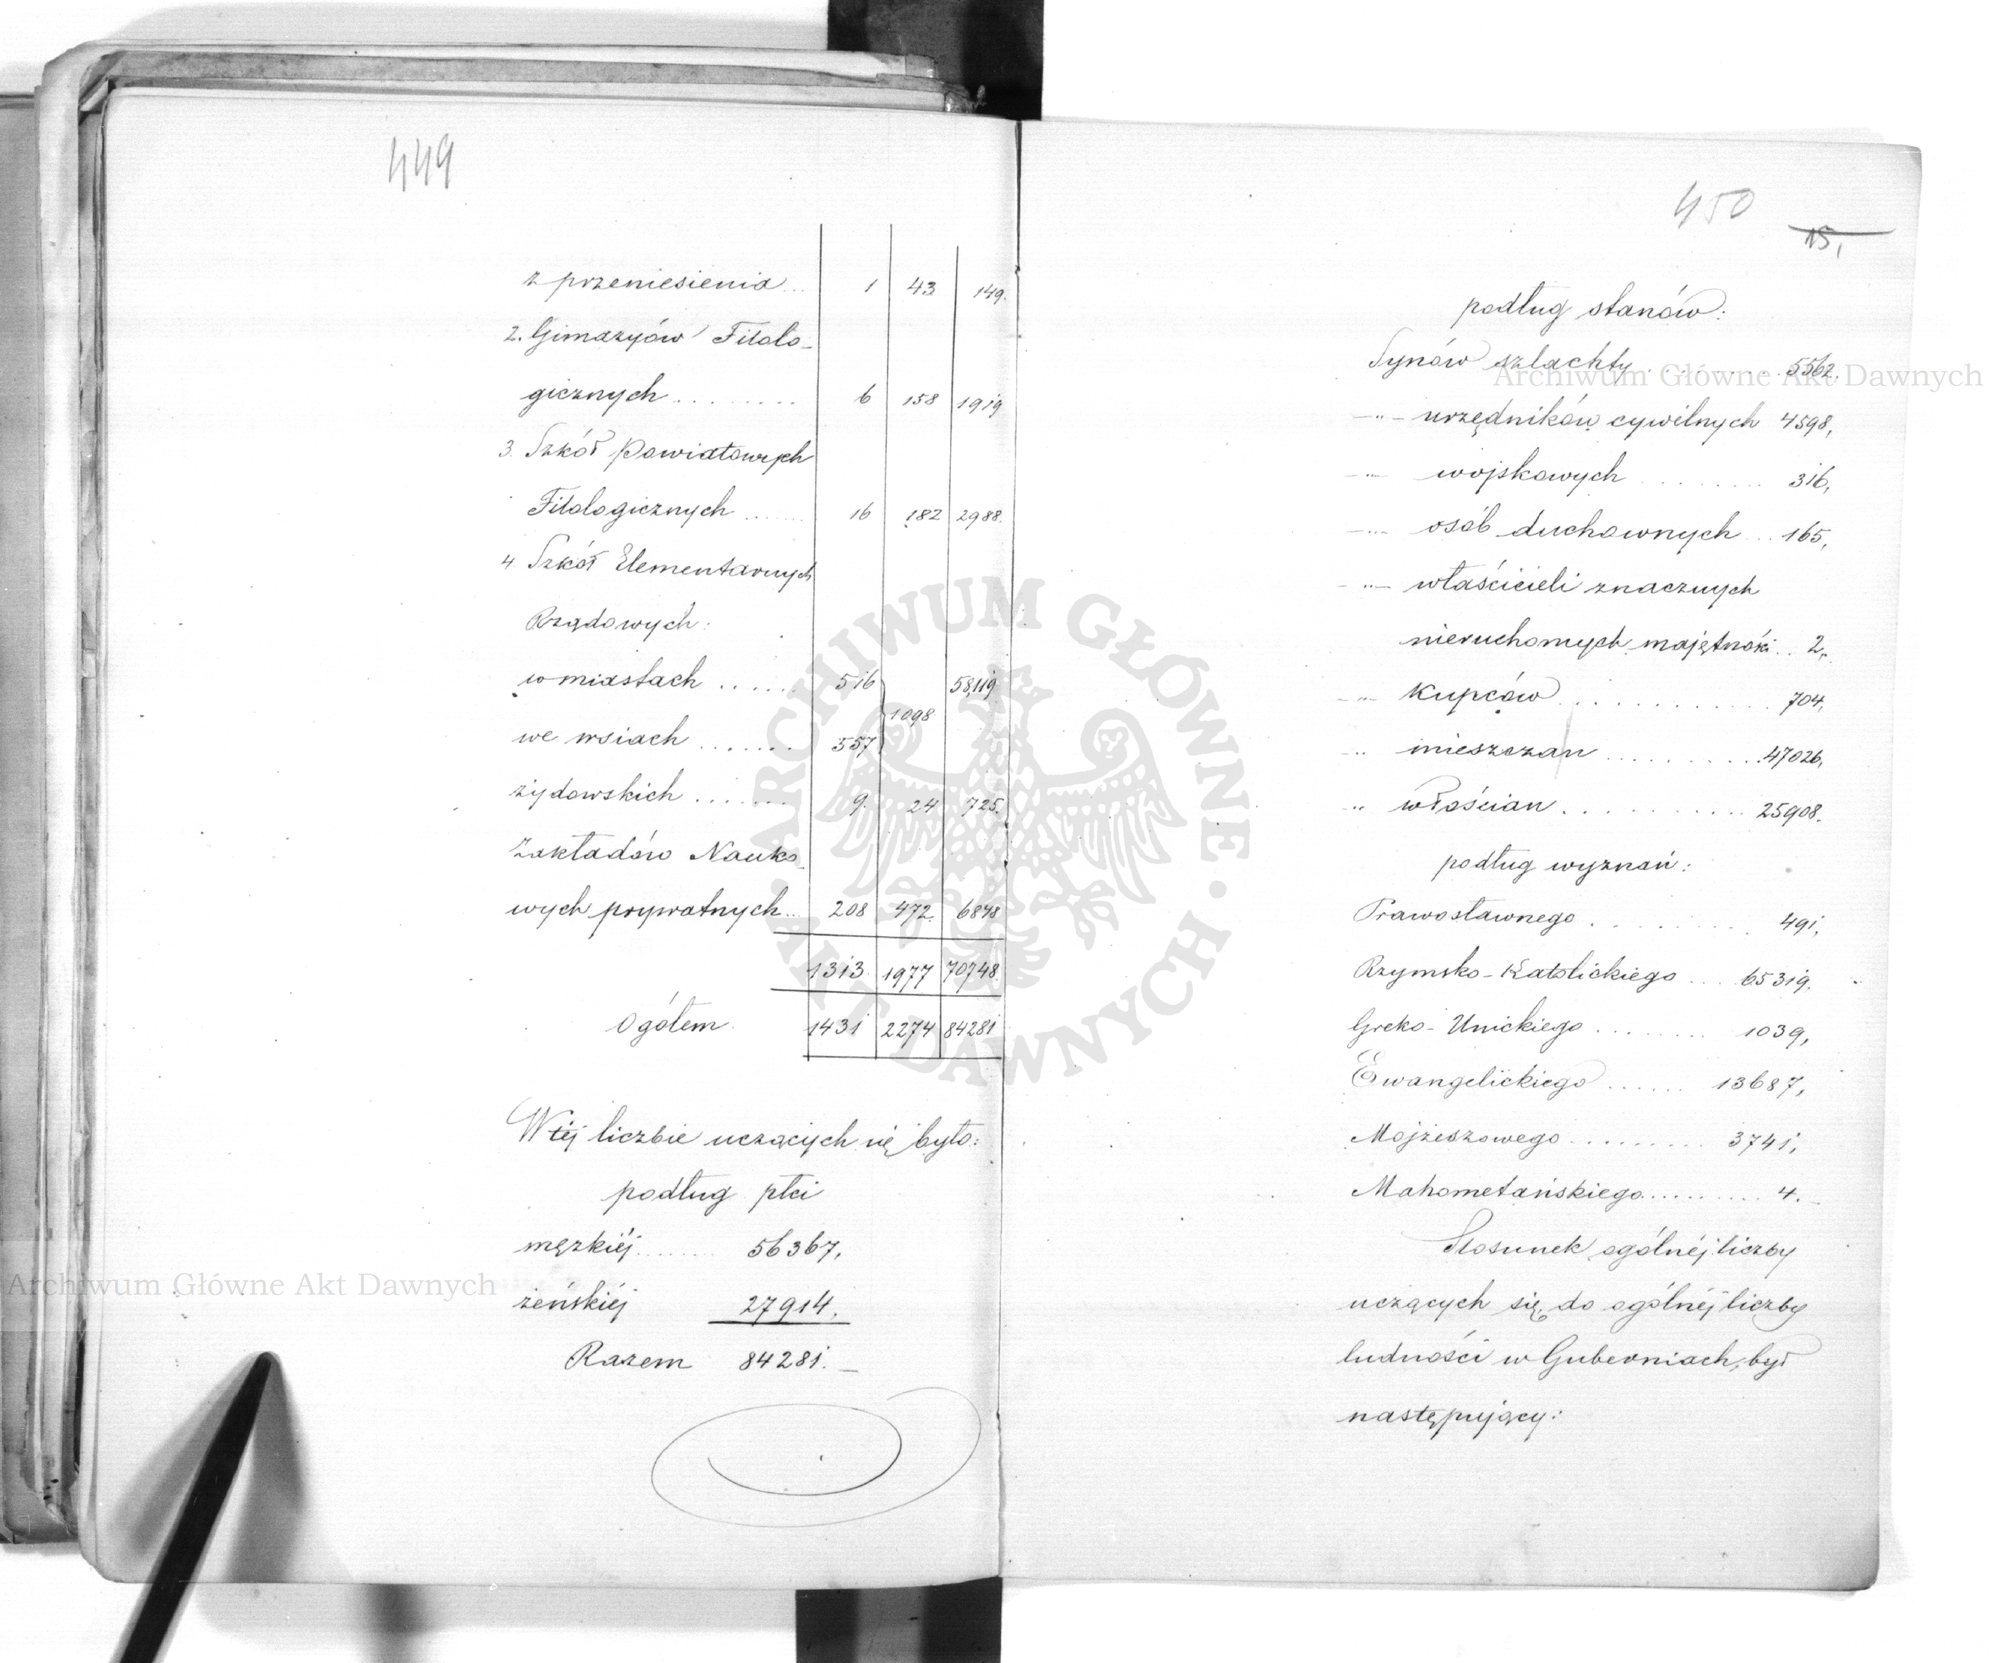 449
z przeniesienia ... 1 43 149.
2. Gimazyów Filolo-
gicznych ......... 6 158 1919
3. Szkół Powiatowych
Filologicznych ...... 16 182 2988.
4 Szkół Elementarnych
Rządowych:
w miastach ...... 516 58,119
1098
we wsiach ....... 557
żydowskich ....... 9. 24 725.
Zakładów Nauko-
wych prywatnych... 208 472. 6848
1313. 1977 70748.
Ogółem. 1431 2274 84281
W téj liczbie uczących się było:
podług płci
męzkiéj ....... 56367,
żeńskiéj 27914.
Razem 84281. —
450
15,
podług stanów:
Synów szlachty ......... 5562,
—"— urzędników cywilnych 4598,
—"— wojskowych ........ 316,
—"— osób duchownych ... 165,
—"— właścicieli znacznych
nieruchomych majętności .. 2,
—"— Kupców ............ 704,
" mieszczan .......... 47026,
" włościan .......... 25908.
podług wyznań:
Prawosławnego .......... 491,
Rzymsko-Katolickiego .... 65319,
Greko-Unickiego ........ 1039,
Ewangelickiego ...... 13687,
Mojżeszowego ......... 3741,
Mahometańskiego .......... 4.
Stosunek ogólnéj liczby
uczących się do ogólnéj liczby
ludności w Guberniach, był
następujący:
Archiwum Główne Akt Dawnych
Archiwum Główne Akt Dawnych
ARCHIWUM GŁÓWNE · AKT DAWNYCH ·